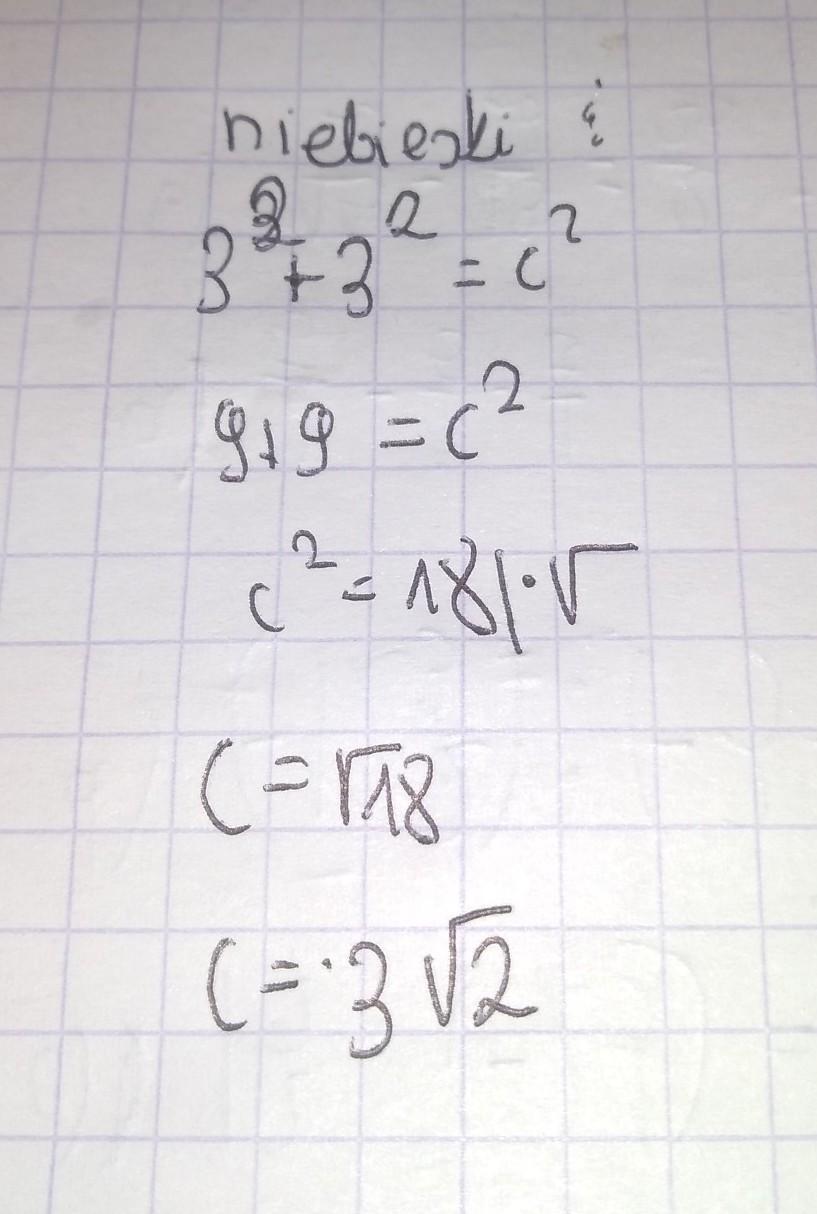 niebieski :
3² + 3² = c²
9+9 = c²
c² = 18 | · √
c = √18
c = · 3 √2